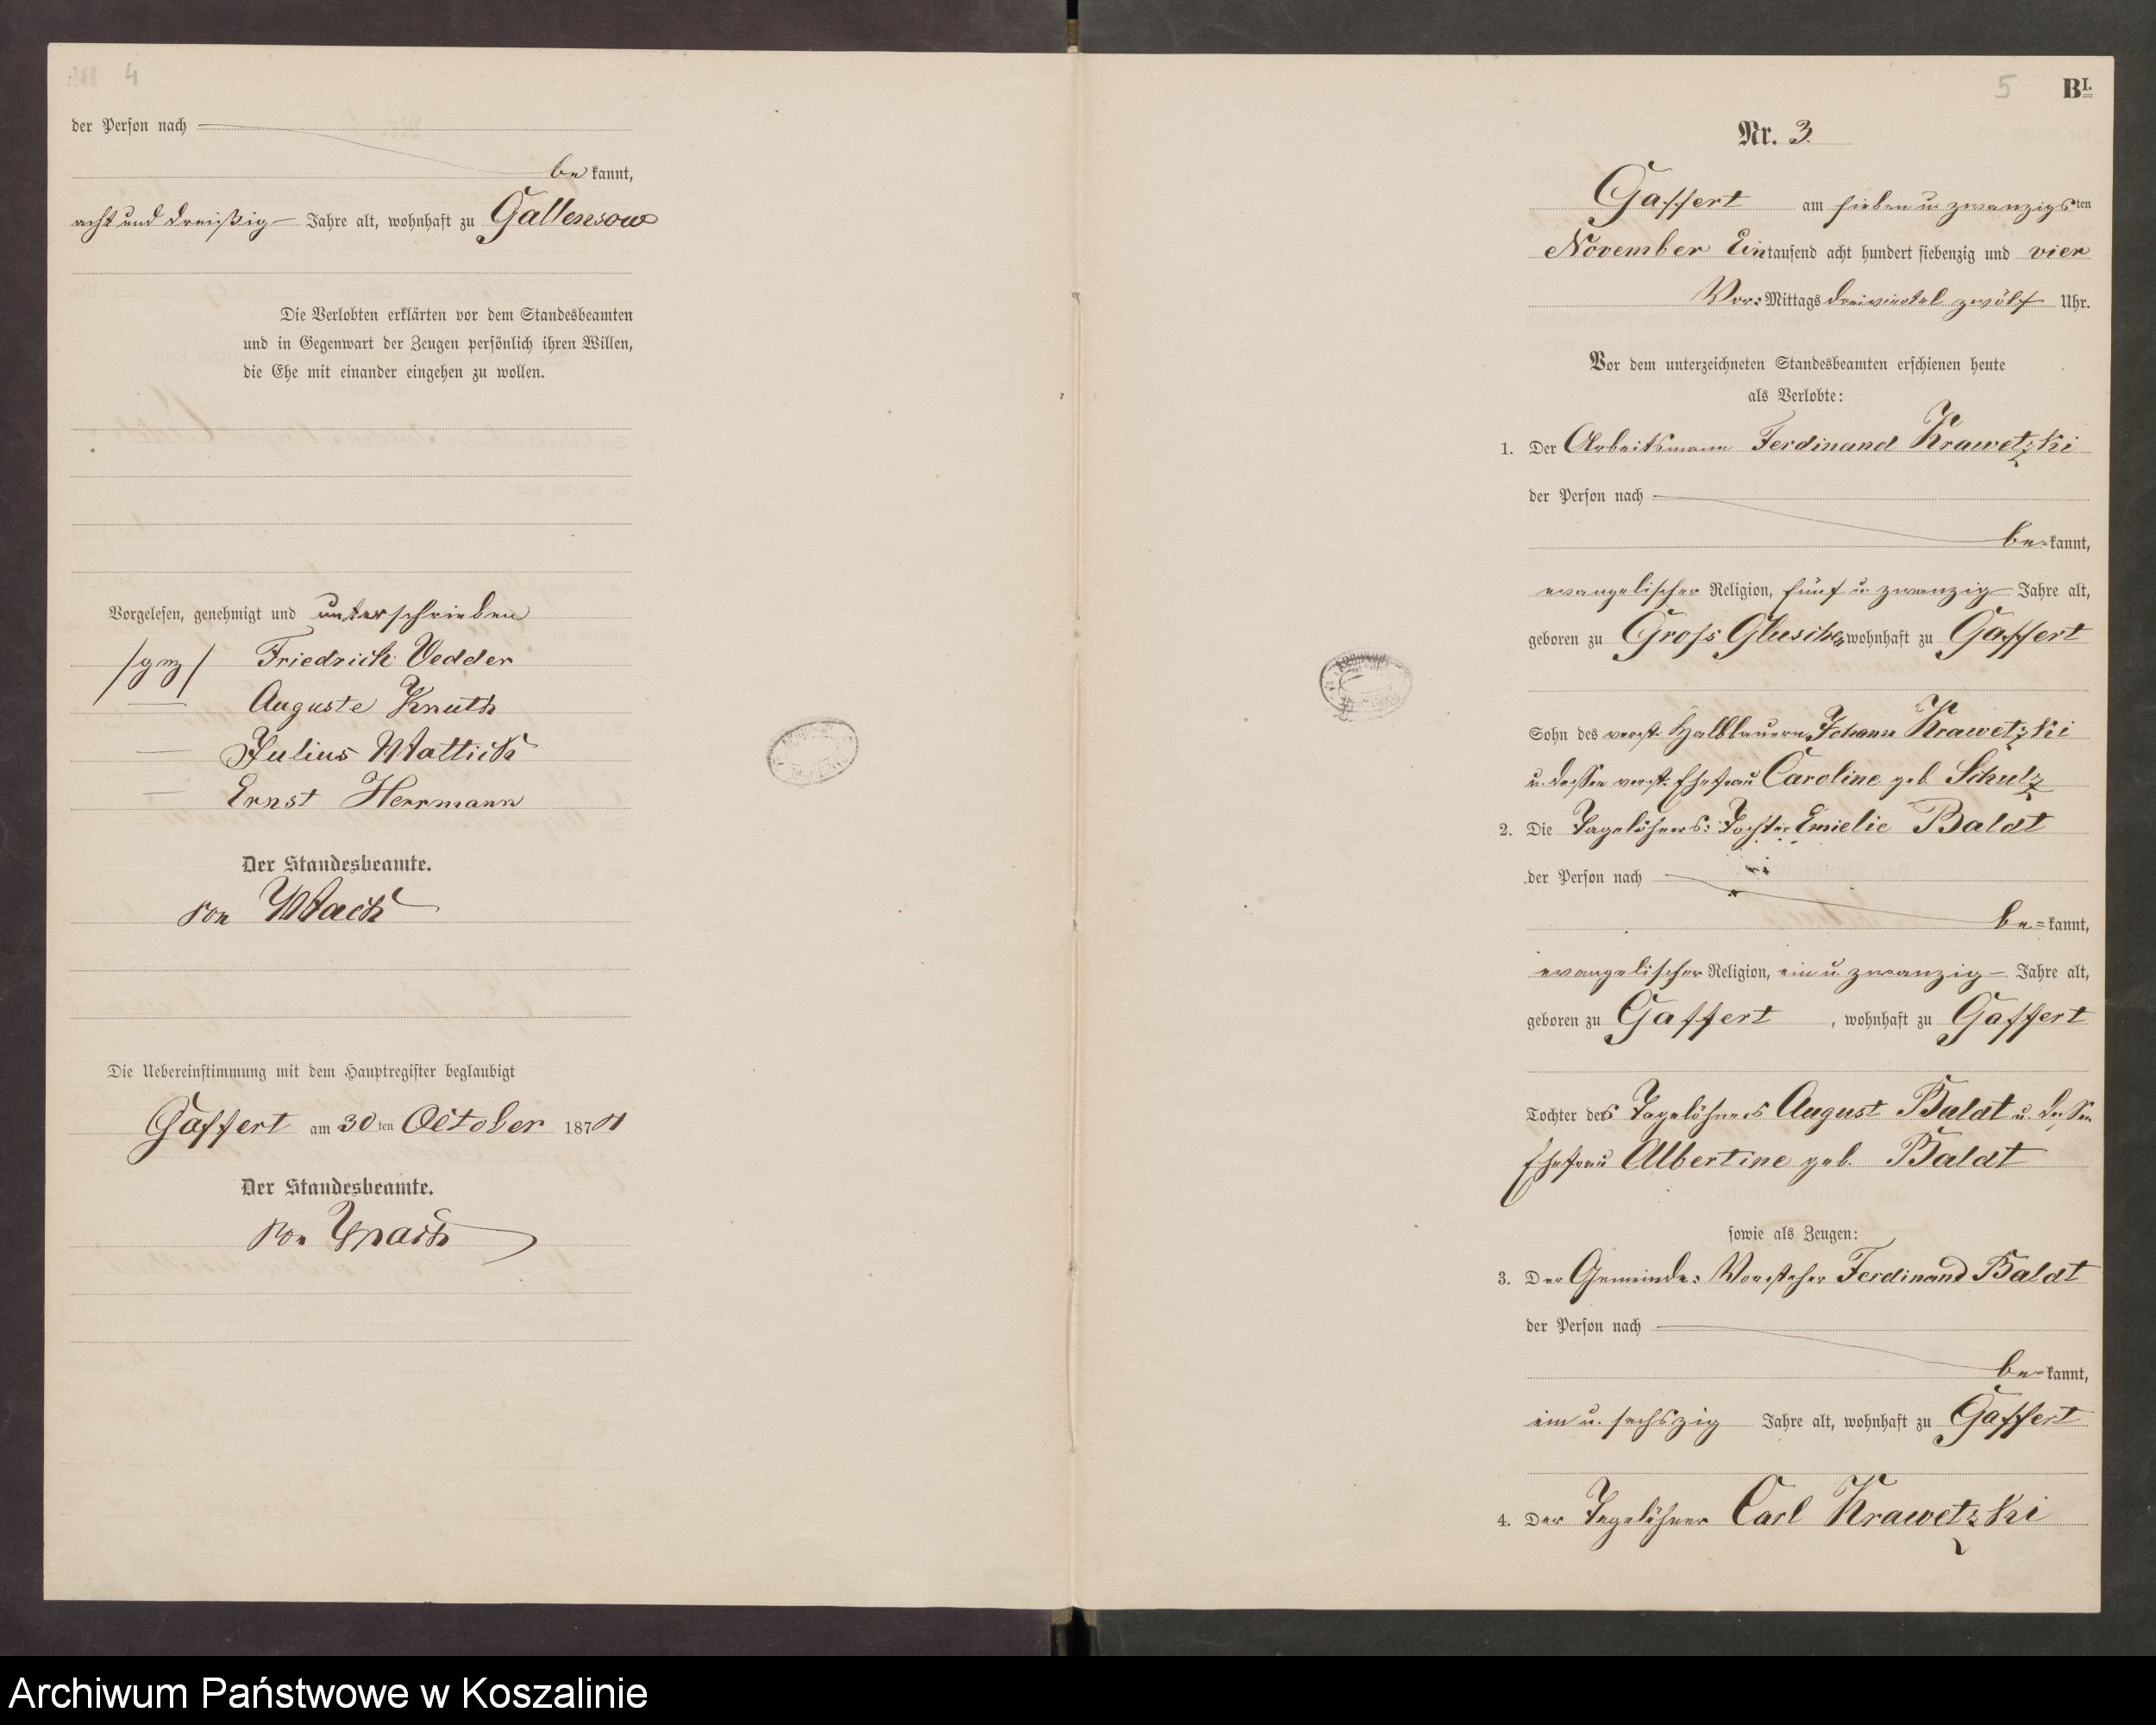 4
der Person nach
bekannt,
acht und dreißig Jahre alt, wohnhaft zu Gallensow
Die Verlobten erklärten vor dem Standesbeamten
und in Gegenwart der Zeugen persönlich ihren Willen,
die Ehe mit einander eingehen zu wollen.
Vorgelesen, genehmigt und unterschrieben
/gez/ Friedrich Vedder
Auguste Knuth
Julius Mallick
Ernst Herrmann
Der Standesbeamte.
von Mach
Die Uebereinstimmung mit dem Hauptregister beglaubigt
Gaffert am 30 ten October 1874
Der Standesbeamte.
von Mach
5 BI.
Nr. 3.
Gaffert am sieben u. zwanzigsten
November Eintausend acht hundert siebenzig und vier
Vor: Mittags dreiviertel zwölf Uhr.
Vor dem unterzeichneten Standesbeamten erschienen heute
als Verlobte:
1. Der Arbeitsmann Ferdinand Krawetzki
der Person nach
be=kannt,
evangelischer Religion, fünf u. zwanzig Jahre alt,
geboren zu Gross Gluschen, wohnhaft zu Gaffert
Sohn des verst. Halbbauern Johann Krawetzki
u. dessen verst. Ehefrau Caroline geb. Schulz
2. Die Tagelöhners: Tochter Emielie Baldt
der Person nach
be=kannt,
evangelischer Religion, ein u. zwanzig Jahre alt,
geboren zu Gaffert, wohnhaft zu Gaffert
Tochter des Tagelöhners August Baldt u. dessen
Ehefrau Albertine geb. Baldt
sowie als Zeugen:
3. Der Gemeinde: Vorsteher Ferdinand Baldt
der Person nach
be=kannt,
ein u. sechszig Jahre alt, wohnhaft zu Gaffert
4. Der Tagelöhner Carl Krawetzki
Archiwum Państwowe w Koszalinie